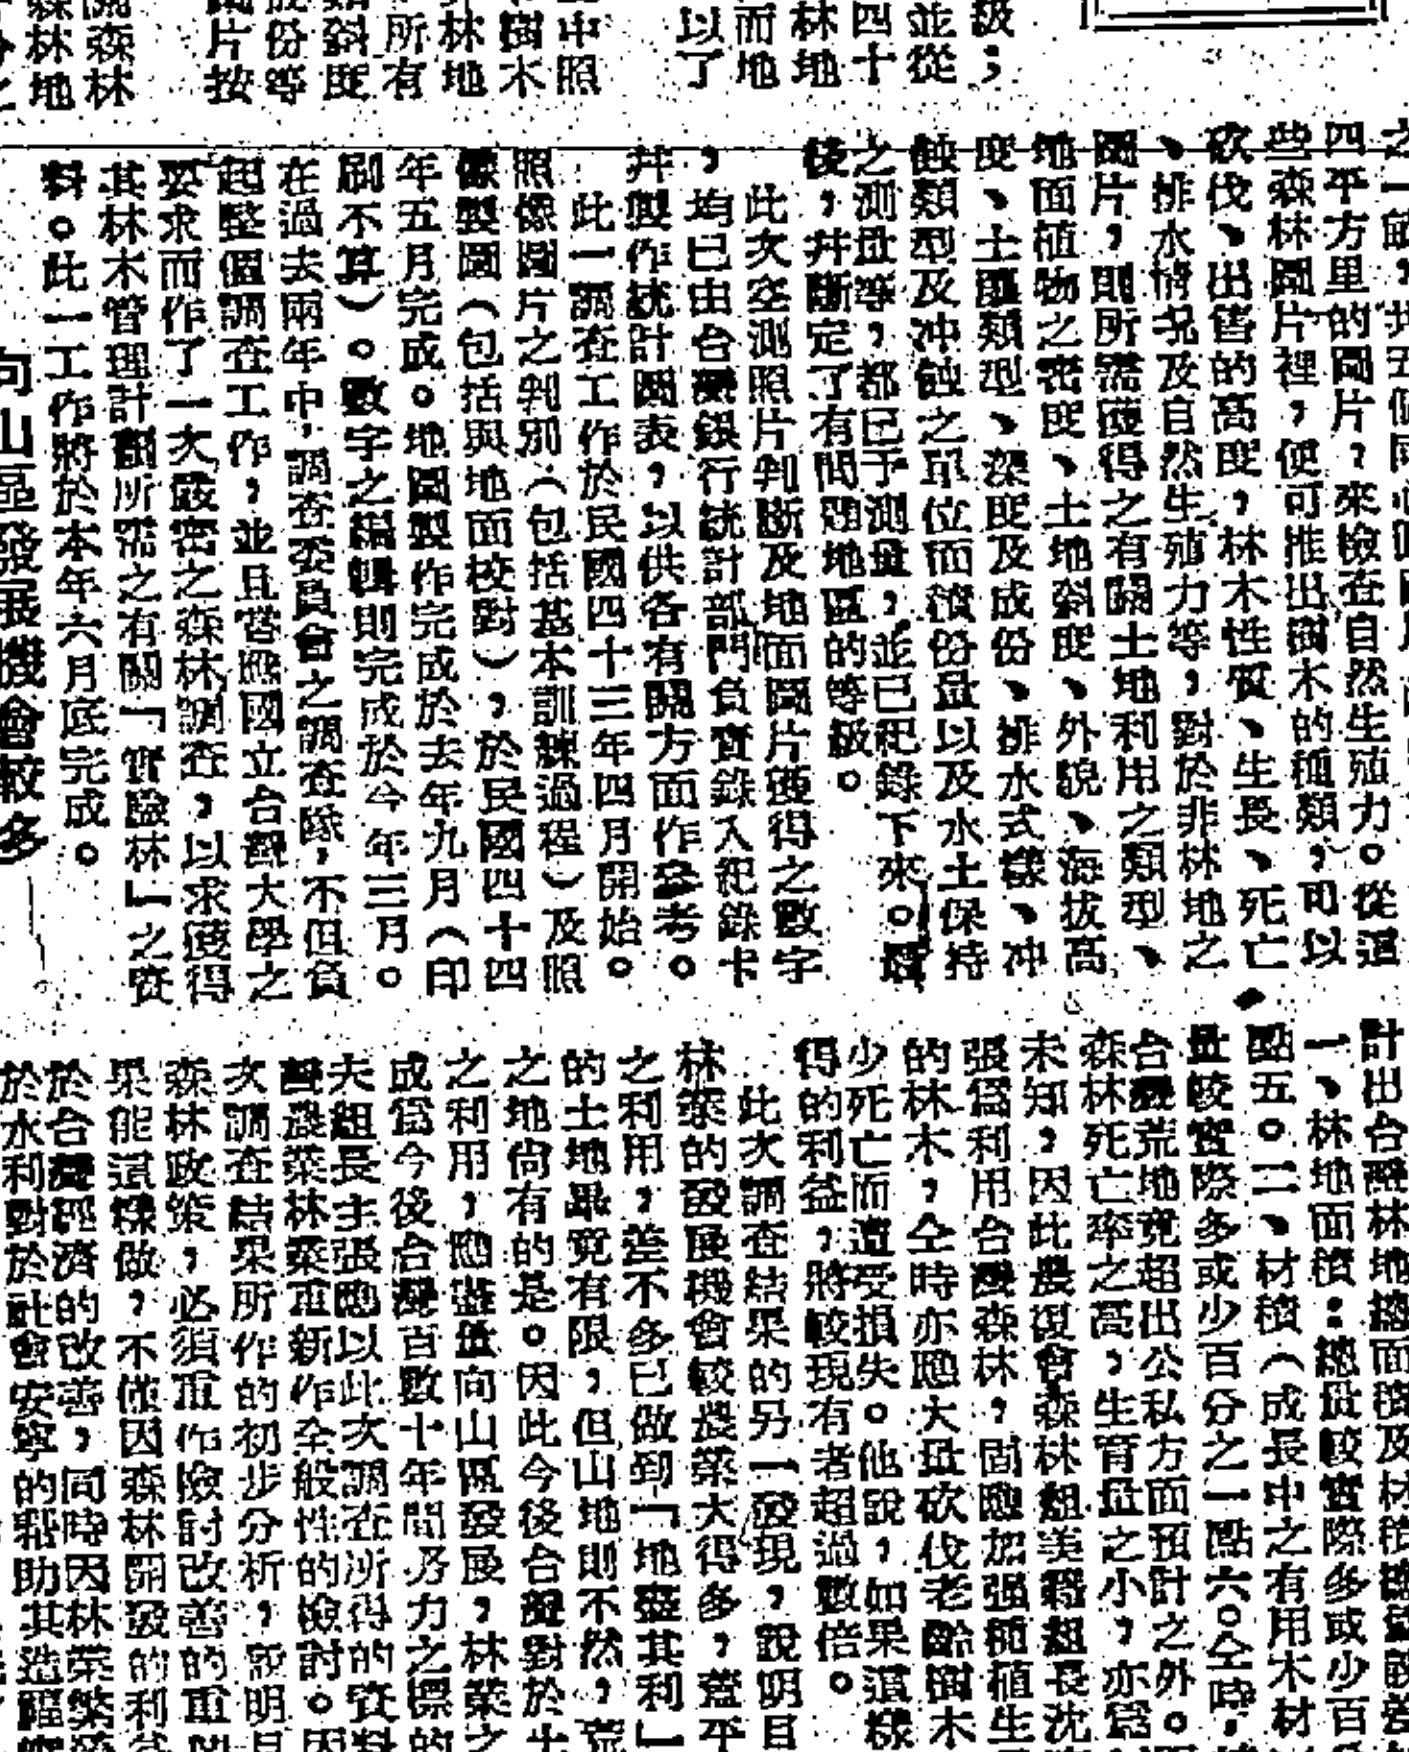 級；
並從
四十
林地
而地
以了
中照
樹木
林地
所有
斜度
份等
片按
森林
林地
四平方里的圖片，來檢查自然生殖力。從這
些森林圖片裡，便可推出樹木的種類，可以
砍伐、出售的高度，林木性質、生長、死亡
、排水情況及自然生殖力等，對於非林地之
圖片，則所需獲得之有關土地利用之類型、
地面植物之密度、土地斜度、外貌、海拔高
度、土壤類型、深度及成份、排水式樣、冲
蝕類型及冲蝕之單位面積份量以及水土保持
之測量等，都已予測量，並已紀錄下來。最
後，并斷定了有問題地區的等級。
此次空測照片判斷及地面圖片獲得之數字
，均已由台灣銀行統計部門負責錄入紀錄卡
并製作統計圖表，以供各有關方面作參考。
此一調查工作於民國四十三年四月開始。
照像圖片之判別（包括基本訓練過程）及照
像製圖（包括與地面校對），於民國四十四
年五月完成。地圖製作完成於去年九月（印
刷不算）。數字之編輯則完成於今年三月。
在過去兩年中，調查委員會之調查隊，不但負
起整個調查工作，並且當應國立台灣大學之
要求而作了一次嚴密之森林調查，以求獲得
其林木管理計劃所需之有關「實驗林」之資
料。此一工作將於本年六月底完成。
向山區發展機會較多
計出台灣林地總面積及材積
一、林地面積：總量較實際多或少百
點五。二、材積（成長中之有用木材
量較實際多或少百分之一點六。仝時，
台灣荒地竟超出公私方面預計之外。
森林死亡率之高，生育量之小，亦爲
未知，因此農復會森林組美籍組長沈
張爲利用台灣森林，固應加强種植生
的林木，仝時亦應大量砍伐老齡樹木
少死亡而遭受損失。他說，如果這樣
得的利益，將較現有者超過數倍。
此次調查結果的另一發現，說明目
林業的發展機會較農業大得多，蓋平
之利用，差不多已做到「地盡其利」
的土地畢竟有限，但山地則不然，荒
之地尙有的是。因此今後台灣對於土
之利用，應盡量向山區發展，林業之
成爲今後台灣百數十年間努力之標的
夫組長主張應以此次調查所得的資料
農業林業重新作全般性的檢討。因
次調查結果所作的初步分析，說明目
森林政策，必須重作檢討改善的重
果能這樣做，不僅因森林開發的利
於台灣經濟的改善，同時因林業繁
於水利對於社會安寧的幫助其造福